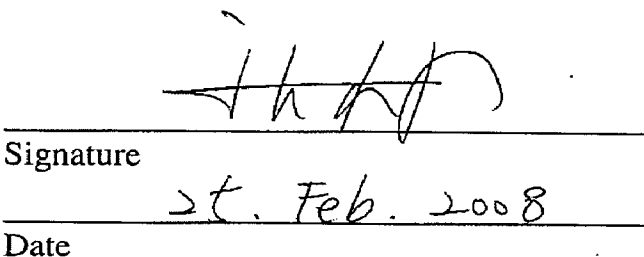 Signature
25. Feb. 2008
Date